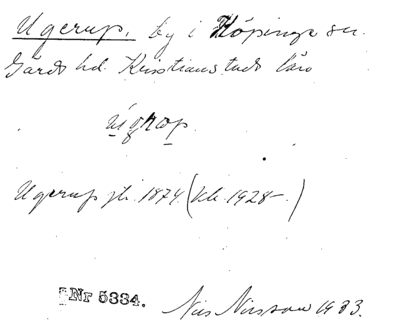 Ugerup, by i Köpinge sn.
Gärds hd. Kristianstads län
ugrap
Ugerup jb. 1874 (kb. 1928–)
Nr 5334.
Nils Nilsson 1933.